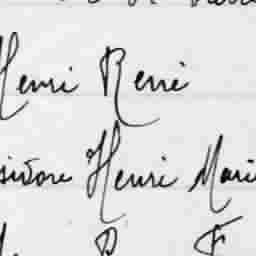 Henri René
sidore Henri Mari